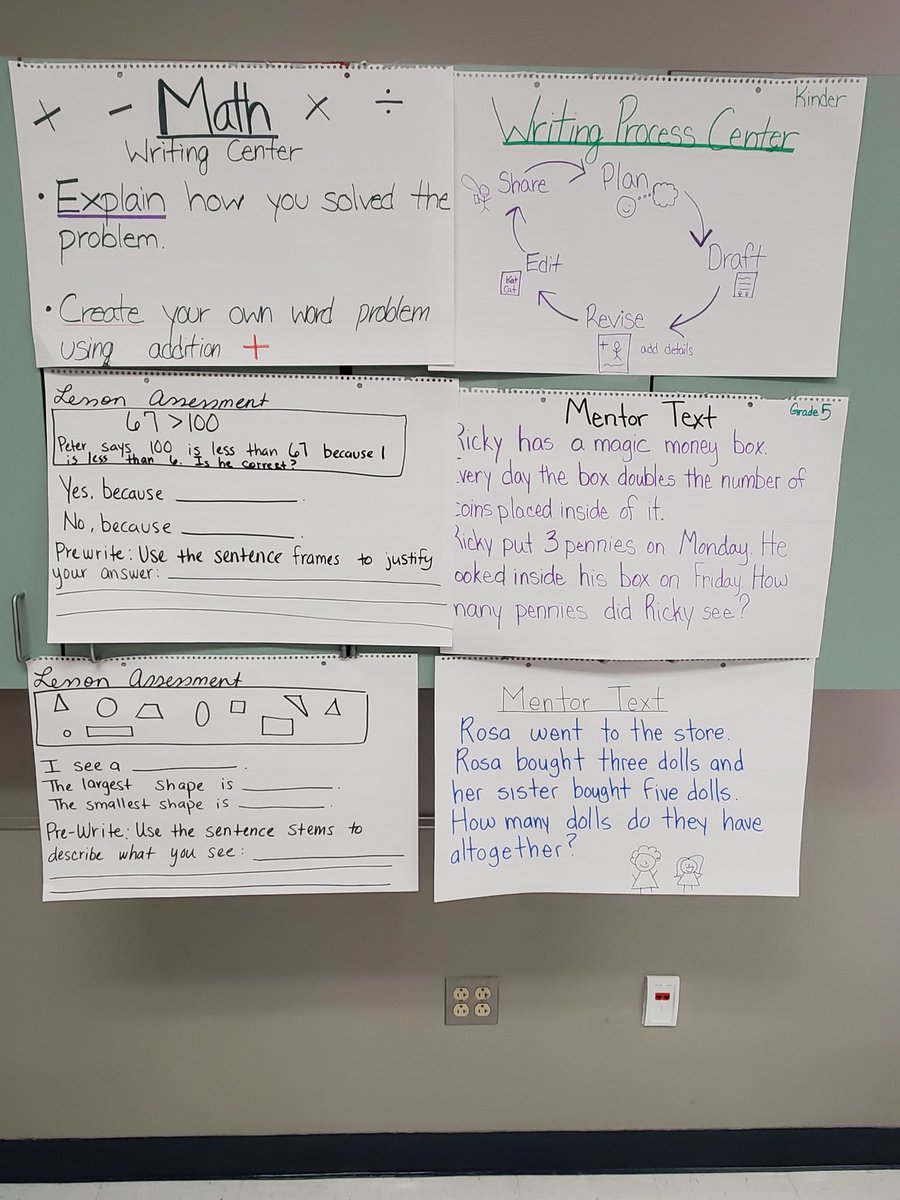 + - Math × ÷
Writing Center
• Explain how you solved the
problem.
• Create your own word problem
using addition +
Kinder
Writing Process Center
Share
Plan
Draft
Edit
Kat
Cat
Revise
+
add details
Lesson Assessment
67 > 100
Peter says 100 is less than 67 because 1
is less than 6. Is he correct?
Yes, because ____________.
No, because ____________.
Prewrite: Use the sentence frames to justify
your answer: ____________
Grade 5
Mentor Text
Ricky has a magic money box.
Every day the box doubles the number of
coins placed inside of it.
Ricky put 3 pennies on Monday. He
looked inside his box on Friday. How
many pennies did Ricky see?
Lesson Assessment
I see a ____________.
The largest shape is ____________.
The smallest shape is ____________.
Pre-Write: Use the sentence stems to
describe what you see: ____________
Mentor Text
Rosa went to the store.
Rosa bought three dolls and
her sister bought five dolls.
How many dolls do they have
altogether?